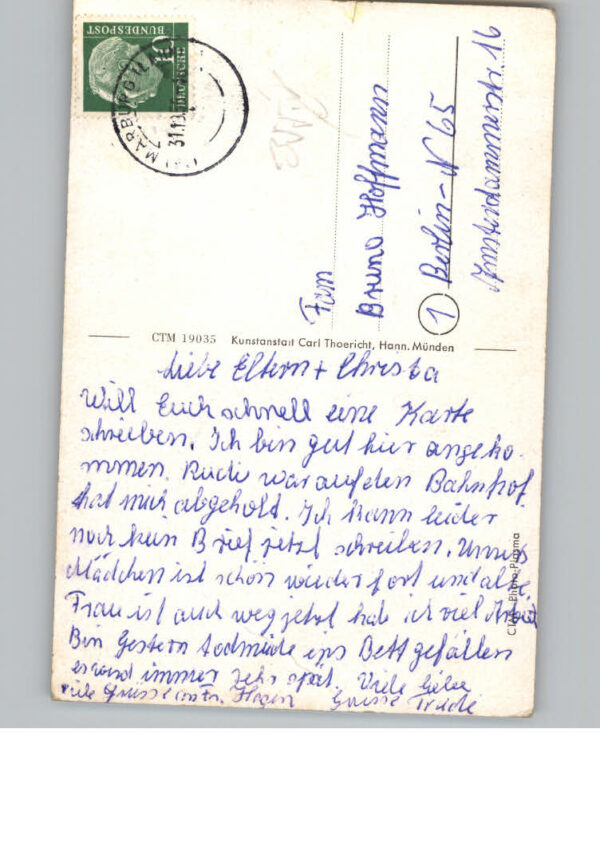 DEUTSCHE
BUNDESPOST
10
MARBURG
31.
Fam
Bruno Hoffmann
① Berlin-N 65
16
CTM 19035 Kunstanstalt Carl Thoericht, Hann. Münden
Liebe Eltern + Christa
Will Euch schnell eine Karte
schreiben. Ich bin gut hier angeko-
mmen. Rudi war auf den Bahnhof
hat mich abgeholt. Ich kann leider
noch kein Brief jetzt schreiben. Unser
Mädchen ist schon wieder fort und alte
Frau ist auch weg jetzt hab ich viel Arbeit
Bin Gestern todmüde ins Bett gefallen
es wird immer sehr spät. Viele liebe
Grüsse Trude
viele Grüsse von Fr.